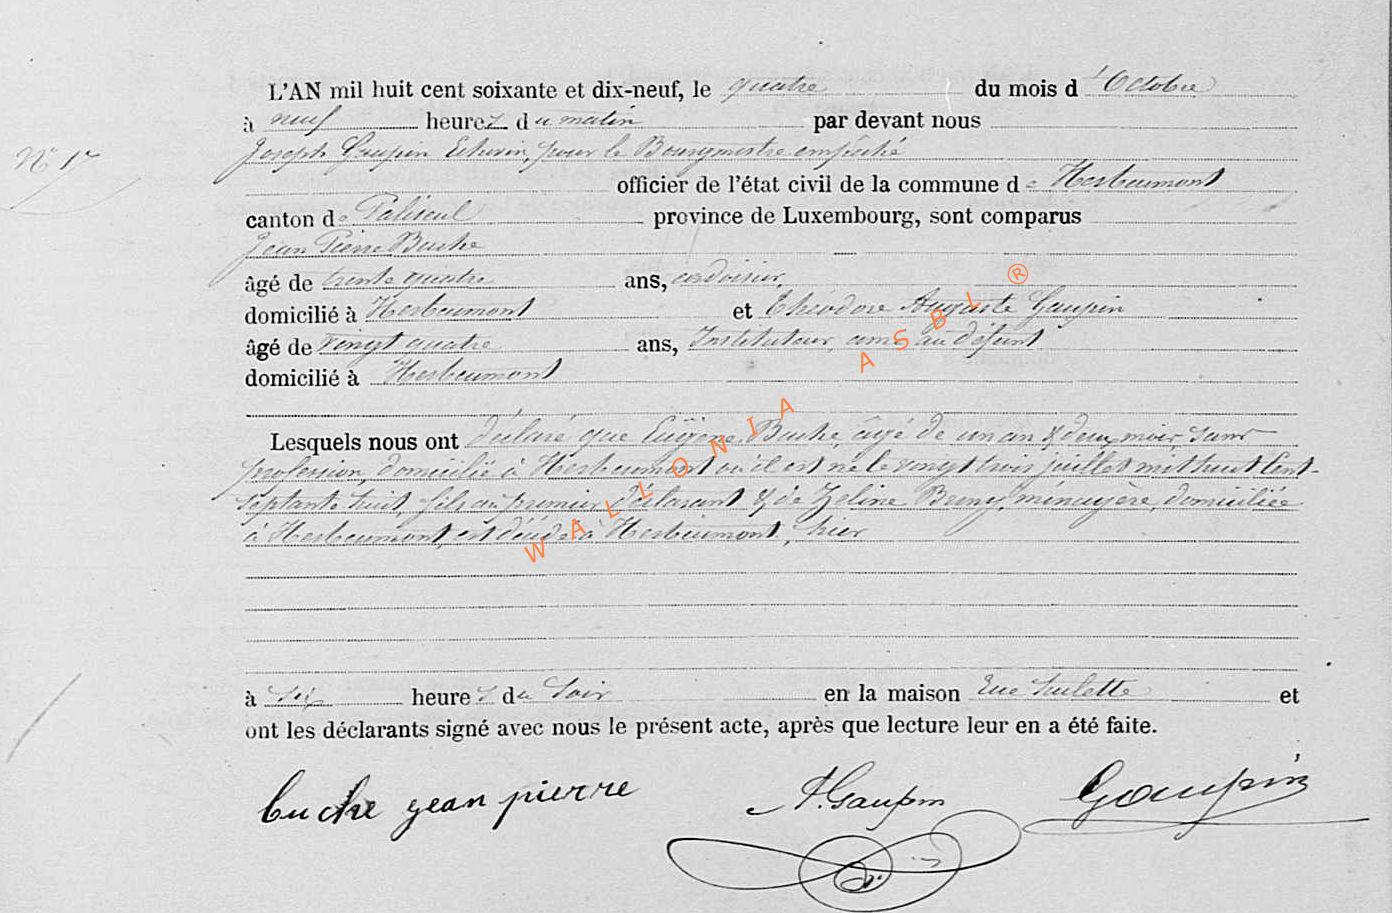 L'AN mil huit cent soixante et dix-neuf, le quatre du mois d'Octobre
à neuf heures du matin par devant nous
N° 17
Joseph Goupin Echevin, pour le Bourgmestre empêché
officier de l'état civil de la commune de Herbeumont
canton de Paliseul province de Luxembourg, sont comparus
Jean Pierre Buche
âgé de trente quatre ans, ardoisier,
domicilié à Herbeumont et Théodore Auguste Gaupin
âgé de vingt quatre ans, Instituteur, ami au défunt
domicilié à Herbeumont
Lesquels nous ont déclaré que Eugène Buche, âgé de un an & deux mois, sans
profession, domicilié à Herbeumont où il est né le vingt trois juillet mil huit cent
septante huit, fils du premier déclarant & de Zeline ménagère, domiciliée
à Herbeumont, est décédé à Herbeumont, hier
à six heures du soir en la maison Rue et
ont les déclarants signé avec nous le présent acte, après que lecture leur en a été faite.
buche jean pierre A. Gaupin Goupin
WALLONIA ASBL ®